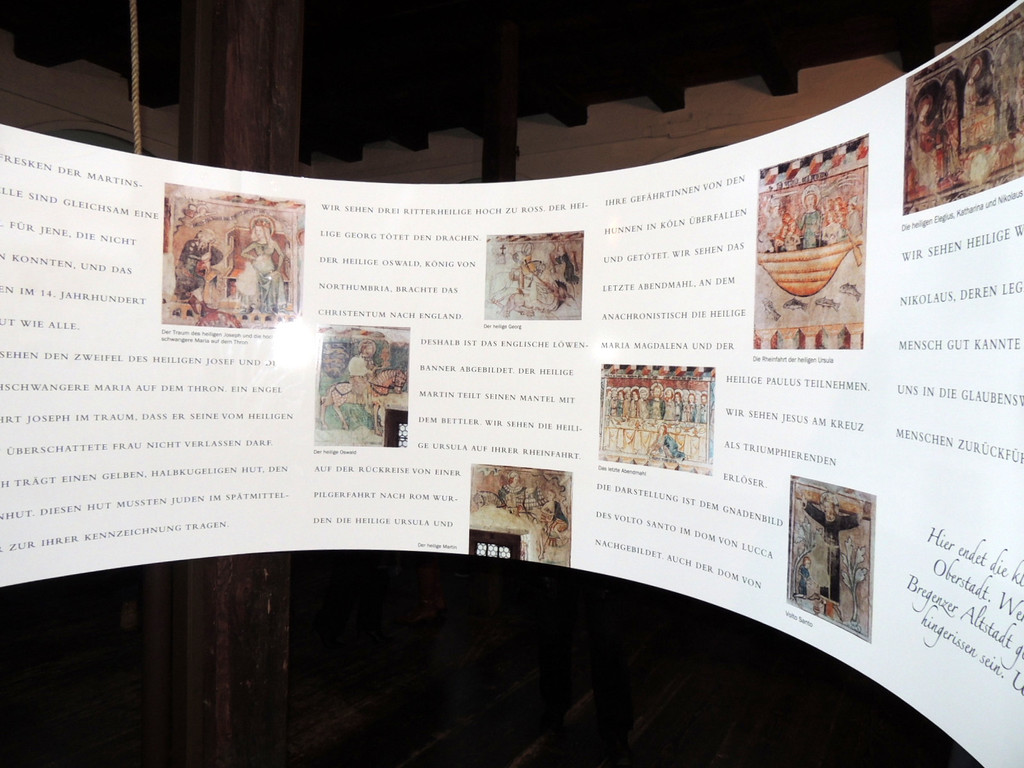 FRESKEN DER MARTINS-
ELLE SIND GLEICHSAM EINE
– FÜR JENE, DIE NICHT
N KONNTEN, UND DAS
EN IM 14. JAHRHUNDERT
UT WIE ALLE.
SEHEN DEN ZWEIFEL DES HEILIGEN JOSEF UND DI
HSCHWANGERE MARIA AUF DEM THRON. EIN ENGEL
HRT JOSEPH IM TRAUM, DASS ER SEINE VOM HEILIGEN
ÜBERSCHATTETE FRAU NICHT VERLASSEN DARF.
H TRÄGT EINEN GELBEN, HALBKUGELIGEN HUT, DEN
NHUT. DIESEN HUT MUSSTEN JUDEN IM SPÄTMITTEL-
R ZUR IHRER KENNZEICHNUNG TRAGEN.
Der Traum des heiligen Joseph und die hoch
schwangere Maria auf dem Thron
WIR SEHEN DREI RITTERHEILIGE HOCH ZU ROSS. DER HEI-
LIGE GEORG TÖTET DEN DRACHEN.
DER HEILIGE OSWALD, KÖNIG VON
NORTHUMBRIA, BRACHTE DAS
CHRISTENTUM NACH ENGLAND.
Der heilige Georg
DESHALB IST DAS ENGLISCHE LÖWEN-
BANNER ABGEBILDET. DER HEILIGE
MARTIN TEILT SEINEN MANTEL MIT
DEM BETTLER. WIR SEHEN DIE HEILI-
GE URSULA AUF IHRER RHEINFAHRT.
Der heilige Oswald
AUF DER RÜCKREISE VON EINER
PILGERFAHRT NACH ROM WUR-
DEN DIE HEILIGE URSULA UND
Der heilige Martin
IHRE GEFÄHRTINNEN VON DEN
HUNNEN IN KÖLN ÜBERFALLEN
UND GETÖTET. WIR SEHEN DAS
LETZTE ABENDMAHL, AN DEM
ANACHRONISTISCH DIE HEILIGE
MARIA MAGDALENA UND DER
Die Rheinfahrt der heiligen Ursula
HEILIGE PAULUS TEILNEHMEN.
WIR SEHEN JESUS AM KREUZ
ALS TRIUMPHIERENDEN
ERLÖSER.
Das letzte Abendmahl
DIE DARSTELLUNG IST DEM GNADENBILD
DES VOLTO SANTO IM DOM VON LUCCA
NACHGEBILDET AUCH DER DOM VON
Volto Santo
Die heiligen Elegius, Katharina und Nikolaus
WIR SEHEN HEILIGE W
NIKOLAUS, DEREN LEG
MENSCH GUT KANNTE
UNS IN DIE GLAUBENSW
MENSCHEN ZURÜCKFÜ
Hier endet die kl
Oberstadt. Wer
Bregenzer Altstadt g
hingerissen sein. U